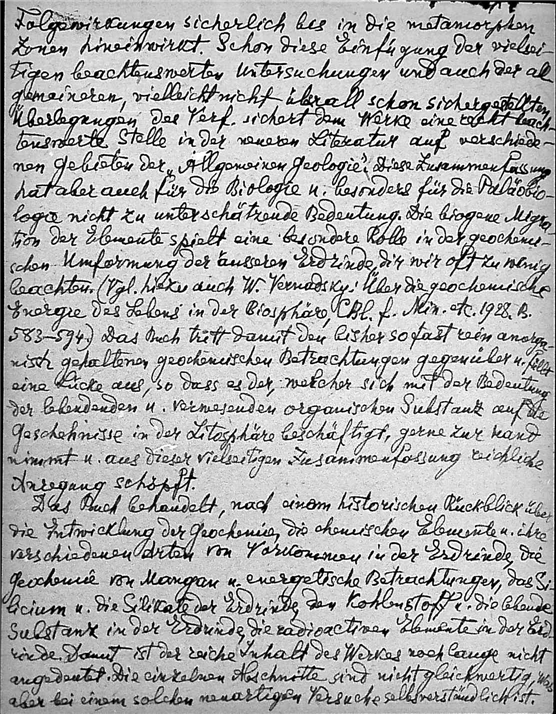 Folgewirkungen sicherlich bis in die metamorphen
Zonen hineinwirkt. Schon diese Einfügung der vielsei-
tigen beachtenswerten Untersuchungen und auch der al
gemeineren, vielleicht nicht überall schon sichergestellten
Überlegungen des Verf. sichert dem Werke eine recht beach
tenswerte Stelle in der neueren Literatur auf verschiede-
nen Gebieten der „Allgemeinen Geologie". Diese Zusammenfassung
hat aber auch für die Biologie u. besonders für die Paläobio-
logie nicht zu unterschätzende Bedeutung. Die biogene Migra
tion der Elemente spielt eine besondere Rolle in der geochemi-
schen Umformung der äusseren Erdrinde, die wir oft zu wenig
beachten. (Vgl. hiezu auch W. Vernadsky: Über die geochemische
Energie des Lebens in der Biosphäre, CBl. f. Min. etc. 1928. B.
583–594.) Das Buch tritt damit den bisher so fast rein anorga-
nisch gehaltenen geochemischen Betrachtungen gegenüber u. füllt
eine Lücke aus, so dass es der, welcher sich mit der Bedeutung
der lebendenden u. verwesenden organischen Substanz auf die
Geschehnisse in der Litosphäre beschäftigt, gerne zur Hand
nimmt u. aus dieser vielseitigen Zusammenfassung reichliche
Anregung schöpft.
Das Buch behandelt, nach einem historischen Rückblick über
die Entwicklung der Geochemie, die chemischen Elemente u. ihre
verschiedenen Arten von Vorkommen in der Erdrinde, die
Geochemie von Mangan u. energetische Betrachtungen, das Si-
licium u. die Silikate der Erdrinde, den Kohlenstoff u. die lebende
Substanz in der Erdrinde, die radioactiven Elemente in der Erd
rinde. Damit ist der reiche Inhalt des Werkes noch lange nicht
angedeutet. Die einzelnen Abschnitte sind nicht gleichwertig, was
aber bei einem solchen neuartigen Versuche selbstverständlich ist.